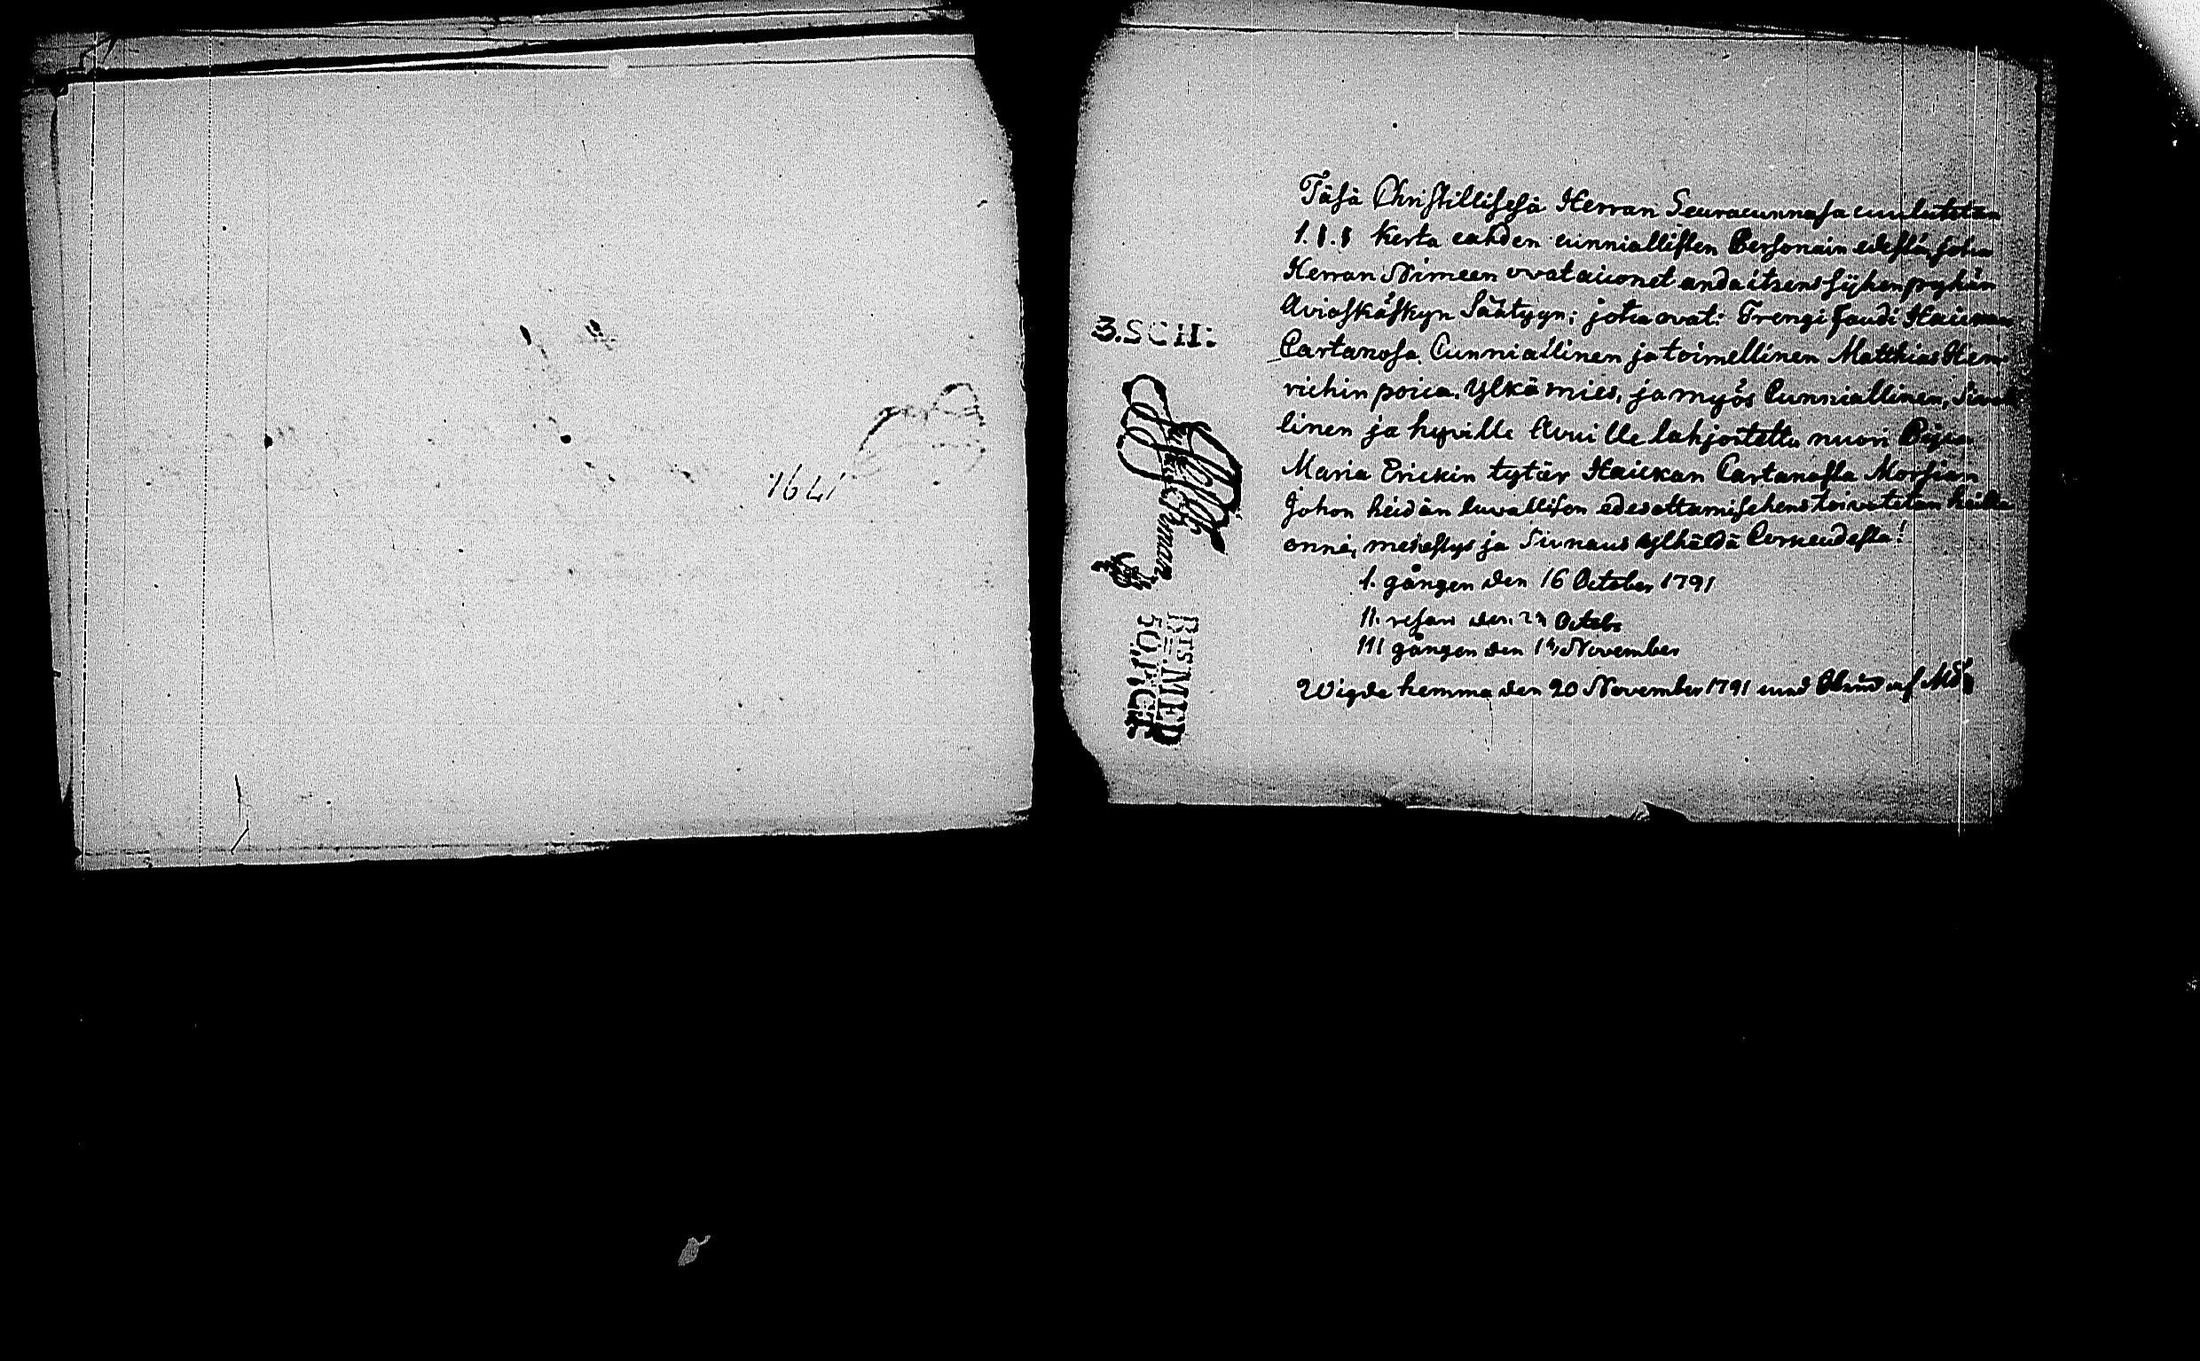 1641
Täsä Christillisesä Herran Seuracunnasa cuulutetan
1. kerta cahden cunniallisten Personain edestä, jotca
Herran Nimeen ovat aiconet anda itzens sijhen pyhän
Avioskäskyn Säätyyn; jotca ovat: Trengi Faudi Haickan
Cartanosa Cunniallinen ja toimellinen Matthias Hen-
richin poica. Ylkä mies, ja myös Cunniallinen, Siwel-
linen ja hyville Avuille lahjoitettu nuori Pijca
Maria Erickin tytär Haickan Cartanosta Morsian
Johon heidän luvallisen edesottamisehens toivotetan heille
onne, menestys ja Siunaus ylhäldä Corkeudesta!
1. gången den 16 October 1791
11. resan den 23 Octobr
111 gången den November
Wigde hemma den 20 November 1791 med af
3.SCH:
BTS MED
FÖRGT